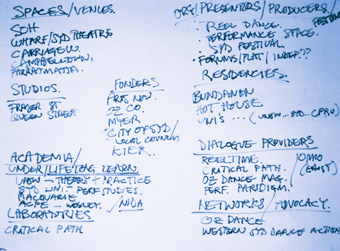 SPACES/VENUES.
SOH
WHARF/SYD THEATRE
CARRIAGEW.
CAMPBELLTOWN.
PARRAMATTA.
STUDIOS.
FRASER ST
QUEEN STREET
FUNDERS
ARTS NSW.
OZ CO.
MYER
CITY OF SYD/
LOCAL COUNCILS
KIER..
ACADEMIA/
UNDER/LIFELONG LEARN
UNSW - THEORY + PRACTICE
SYD UNI. - PERF STUDIES.
MACQUARIE
ACPE - WESLEY. / NIDA
LABORATORIES
CRITICAL PATH
ORG/PRESENTORS/PRODUCERS/
REEL DANCE.
PERFORMANCE SPACE.
SYD FESTIVAL
FORUMS/PLAT/INDEP??
RESIDENCIES.
BUNDANON
HOT HOUSE
UNI'S ... (UNSW..SYD..CPRU)
DIALOGUE PROVIDERS
REALTIME.
CRITICAL PATH.
OZ DANCE MAG.
PERF. PARADIGM.
NETWORKS/ADVOCACY.
OZ DANCE
WESTERN SYD DANCE ACTION